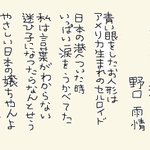 野口雨情
青い眼をしたお人形は
アメリカ生まれのセルロイド
日本の港へついた時
いっぱい涙をうかべてた
私は言葉がわからない
迷ひ子になったらなんとせう
やさしい日本の嬢ちゃんよ